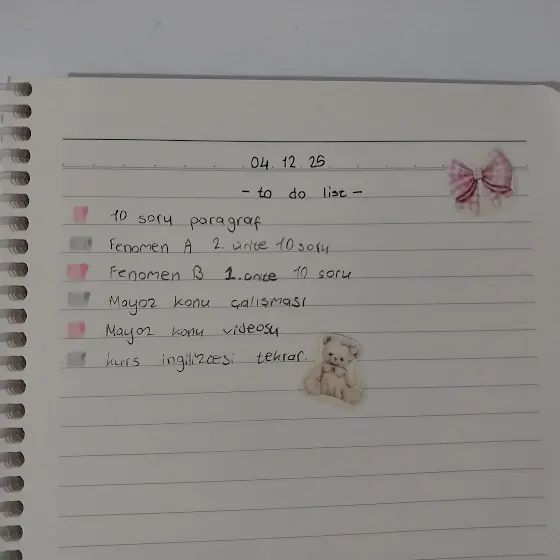 04.12.25
- to do list -
10 soru paragraf
Fenomen A 2. ünite 10 soru
Fenomen B 1. ünite 10 soru
Mayoz konu çalışması
Mayoz konu videosu
kurs ingilizcesi tekrar